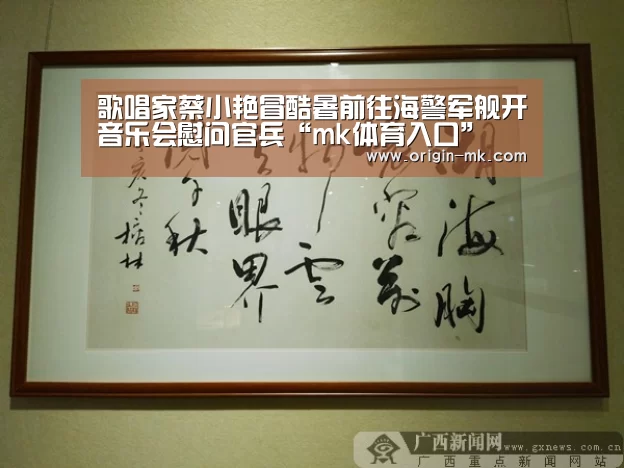 歌唱家蔡小艳冒酷暑前往海警军舰开
音乐会慰问官兵“mk体育入口”
www.origin-mk.com
湖海胸
容万
物云
眼界
千秋
亥冬培林
广西新闻网
www.gxnews.com.cn
广西重点新闻网站